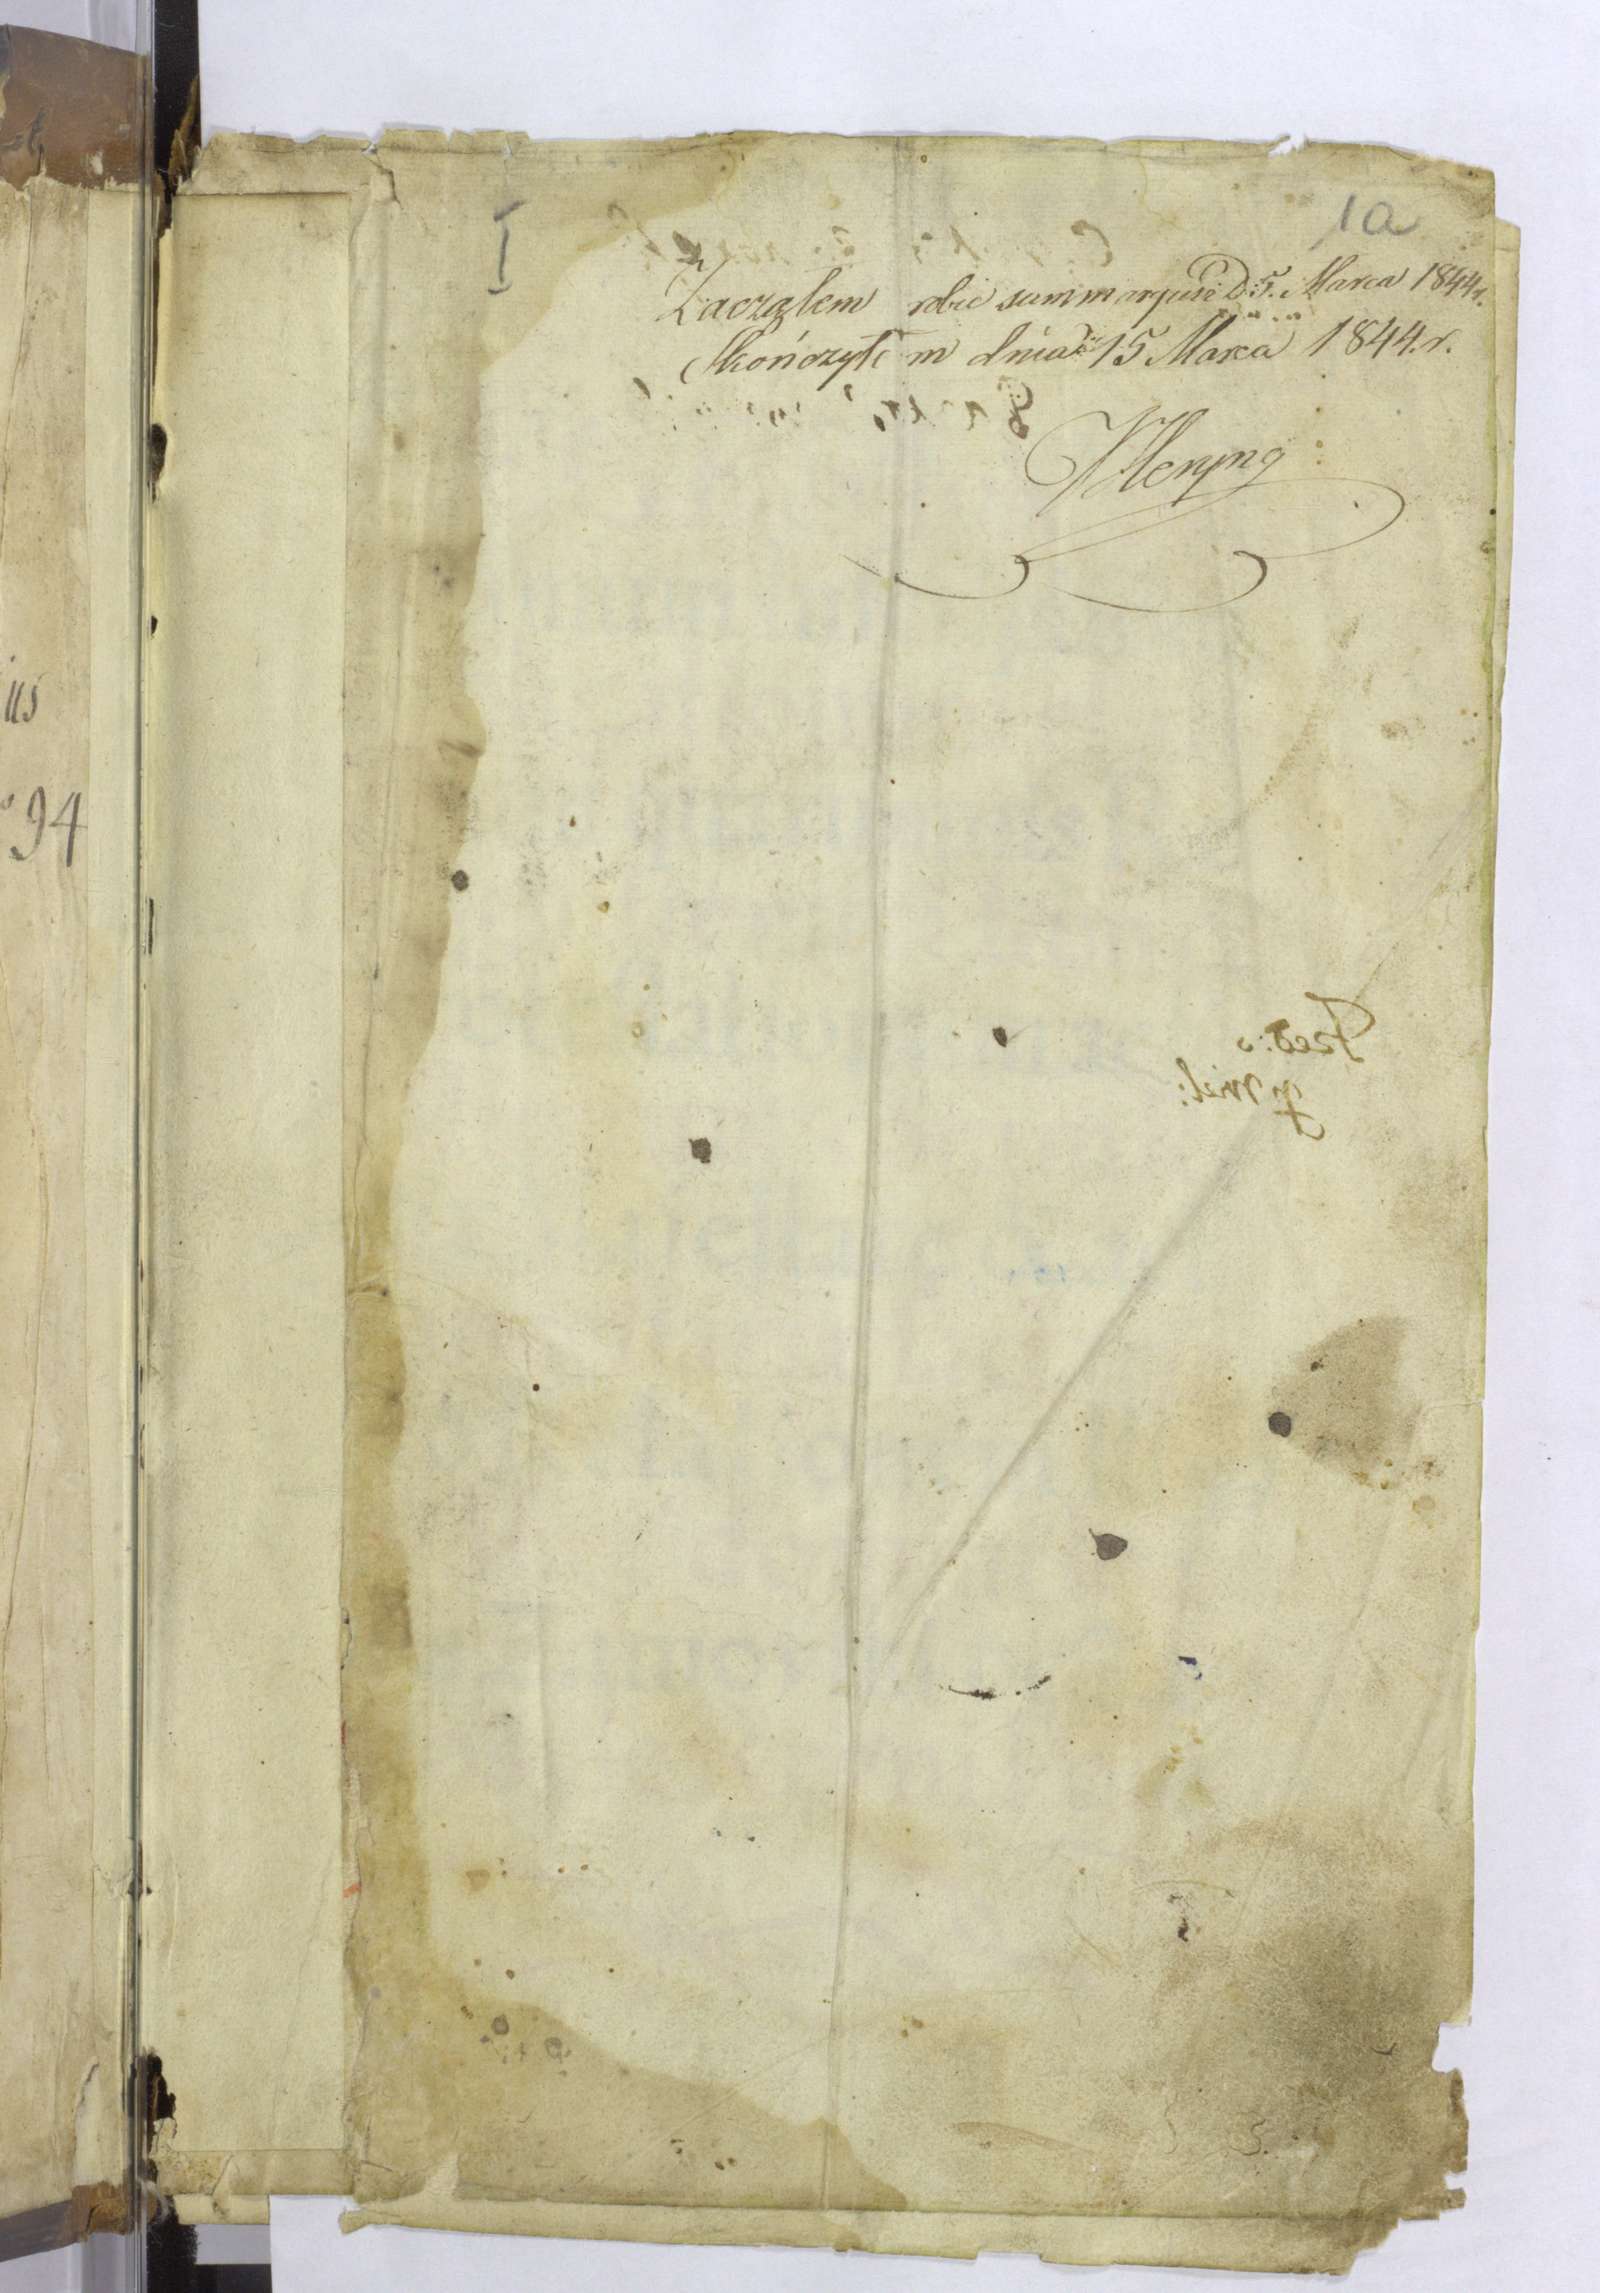 I
1a
Zacząłem robić summaryusz D 5. Marca 1844 r.
Skończyłem dnia 15 Marca 1844. r.
Heryng
94